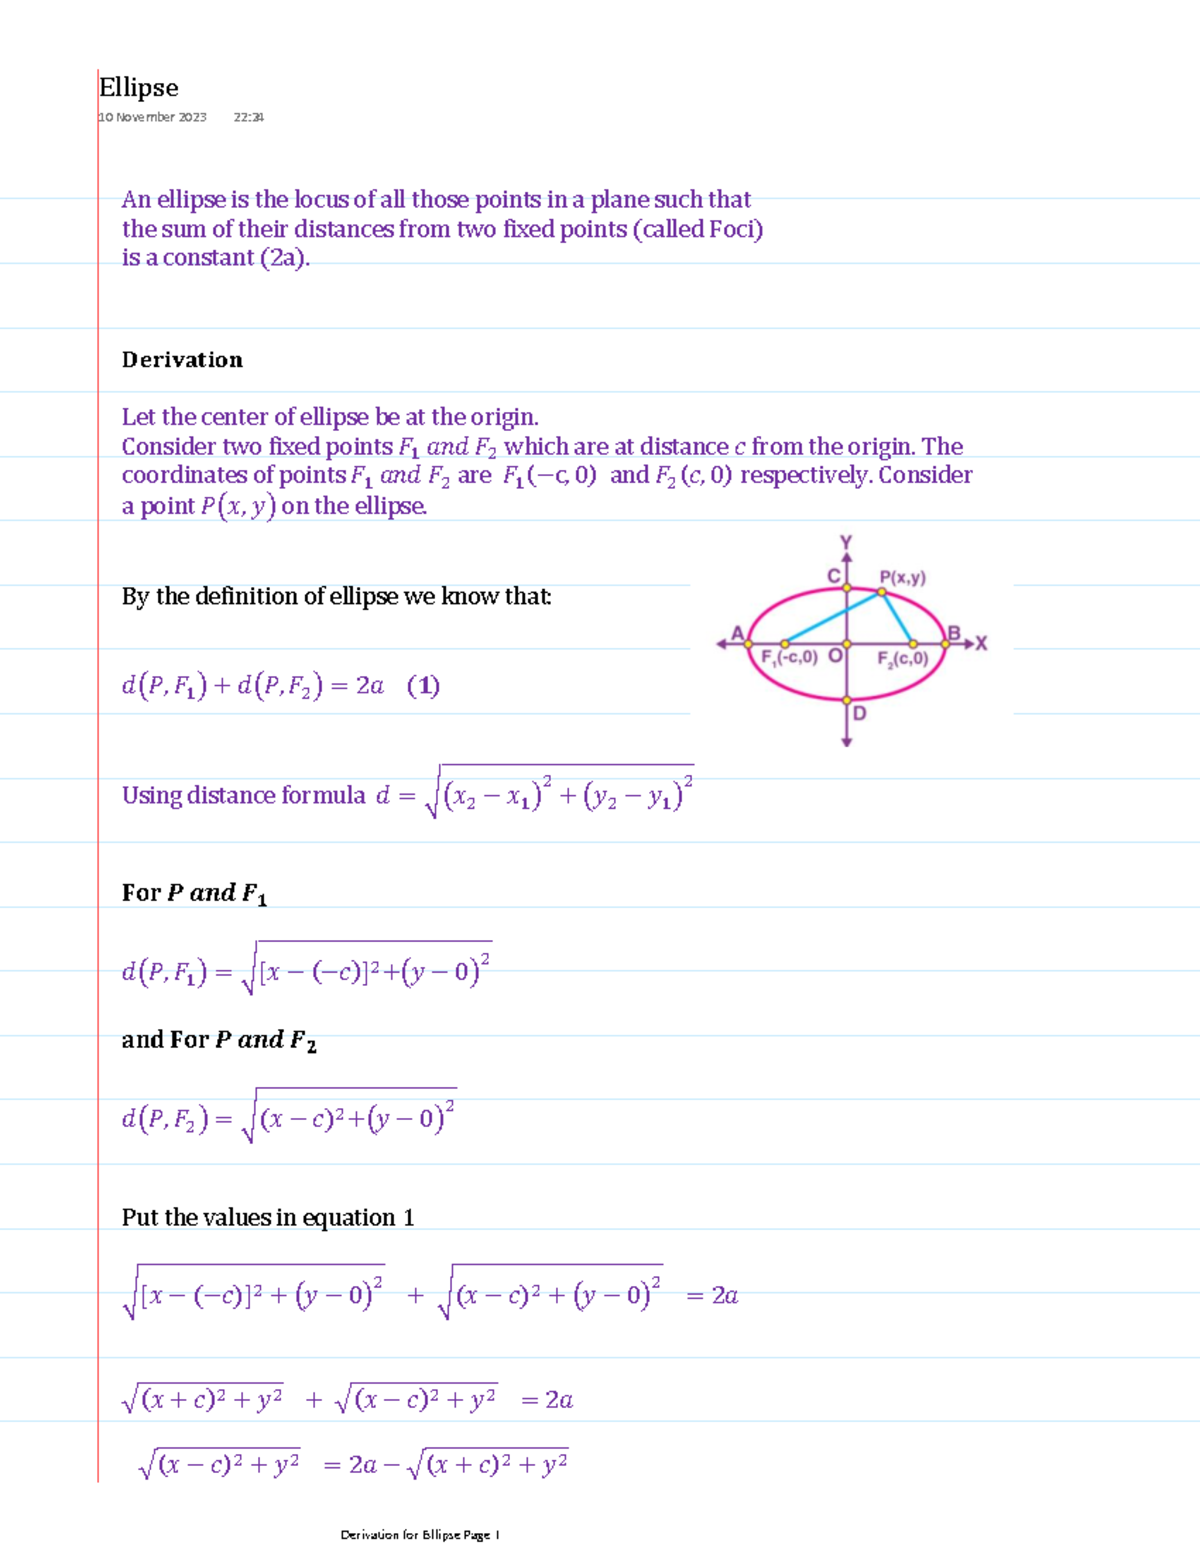 Ellipse
10 November 2023 22:24
An ellipse is the locus of all those points in a plane such that
the sum of their distances from two fixed points (called Foci)
is a constant (2a).
Derivation
Let the center of ellipse be at the origin.
Consider two fixed points F₁ and F₂ which are at distance c from the origin. The
coordinates of points F₁ and F₂ are F₁(−c, 0) and F₂(c, 0) respectively. Consider
a point P(x, y) on the ellipse.
By the definition of ellipse we know that:
Y
C P(x,y)
A B X
F₁(-c,0) O F₂(c,0)
D
d(P, F₁) + d(P, F₂) = 2a (1)
Using distance formula d = √((x₂ − x₁)² + (y₂ − y₁)²)
For P and F₁
d(P, F₁) = √([x − (−c)]²+(y − 0)²)
and For P and F₂
d(P, F₂) = √((x − c)²+(y − 0)²)
Put the values in equation 1
√([x − (−c)]² + (y − 0)²) + √((x − c)² + (y − 0)²) = 2a
√((x + c)² + y²) + √((x − c)² + y²) = 2a
√((x − c)² + y²) = 2a − √((x + c)² + y²)
Derivation for Ellipse Page 1